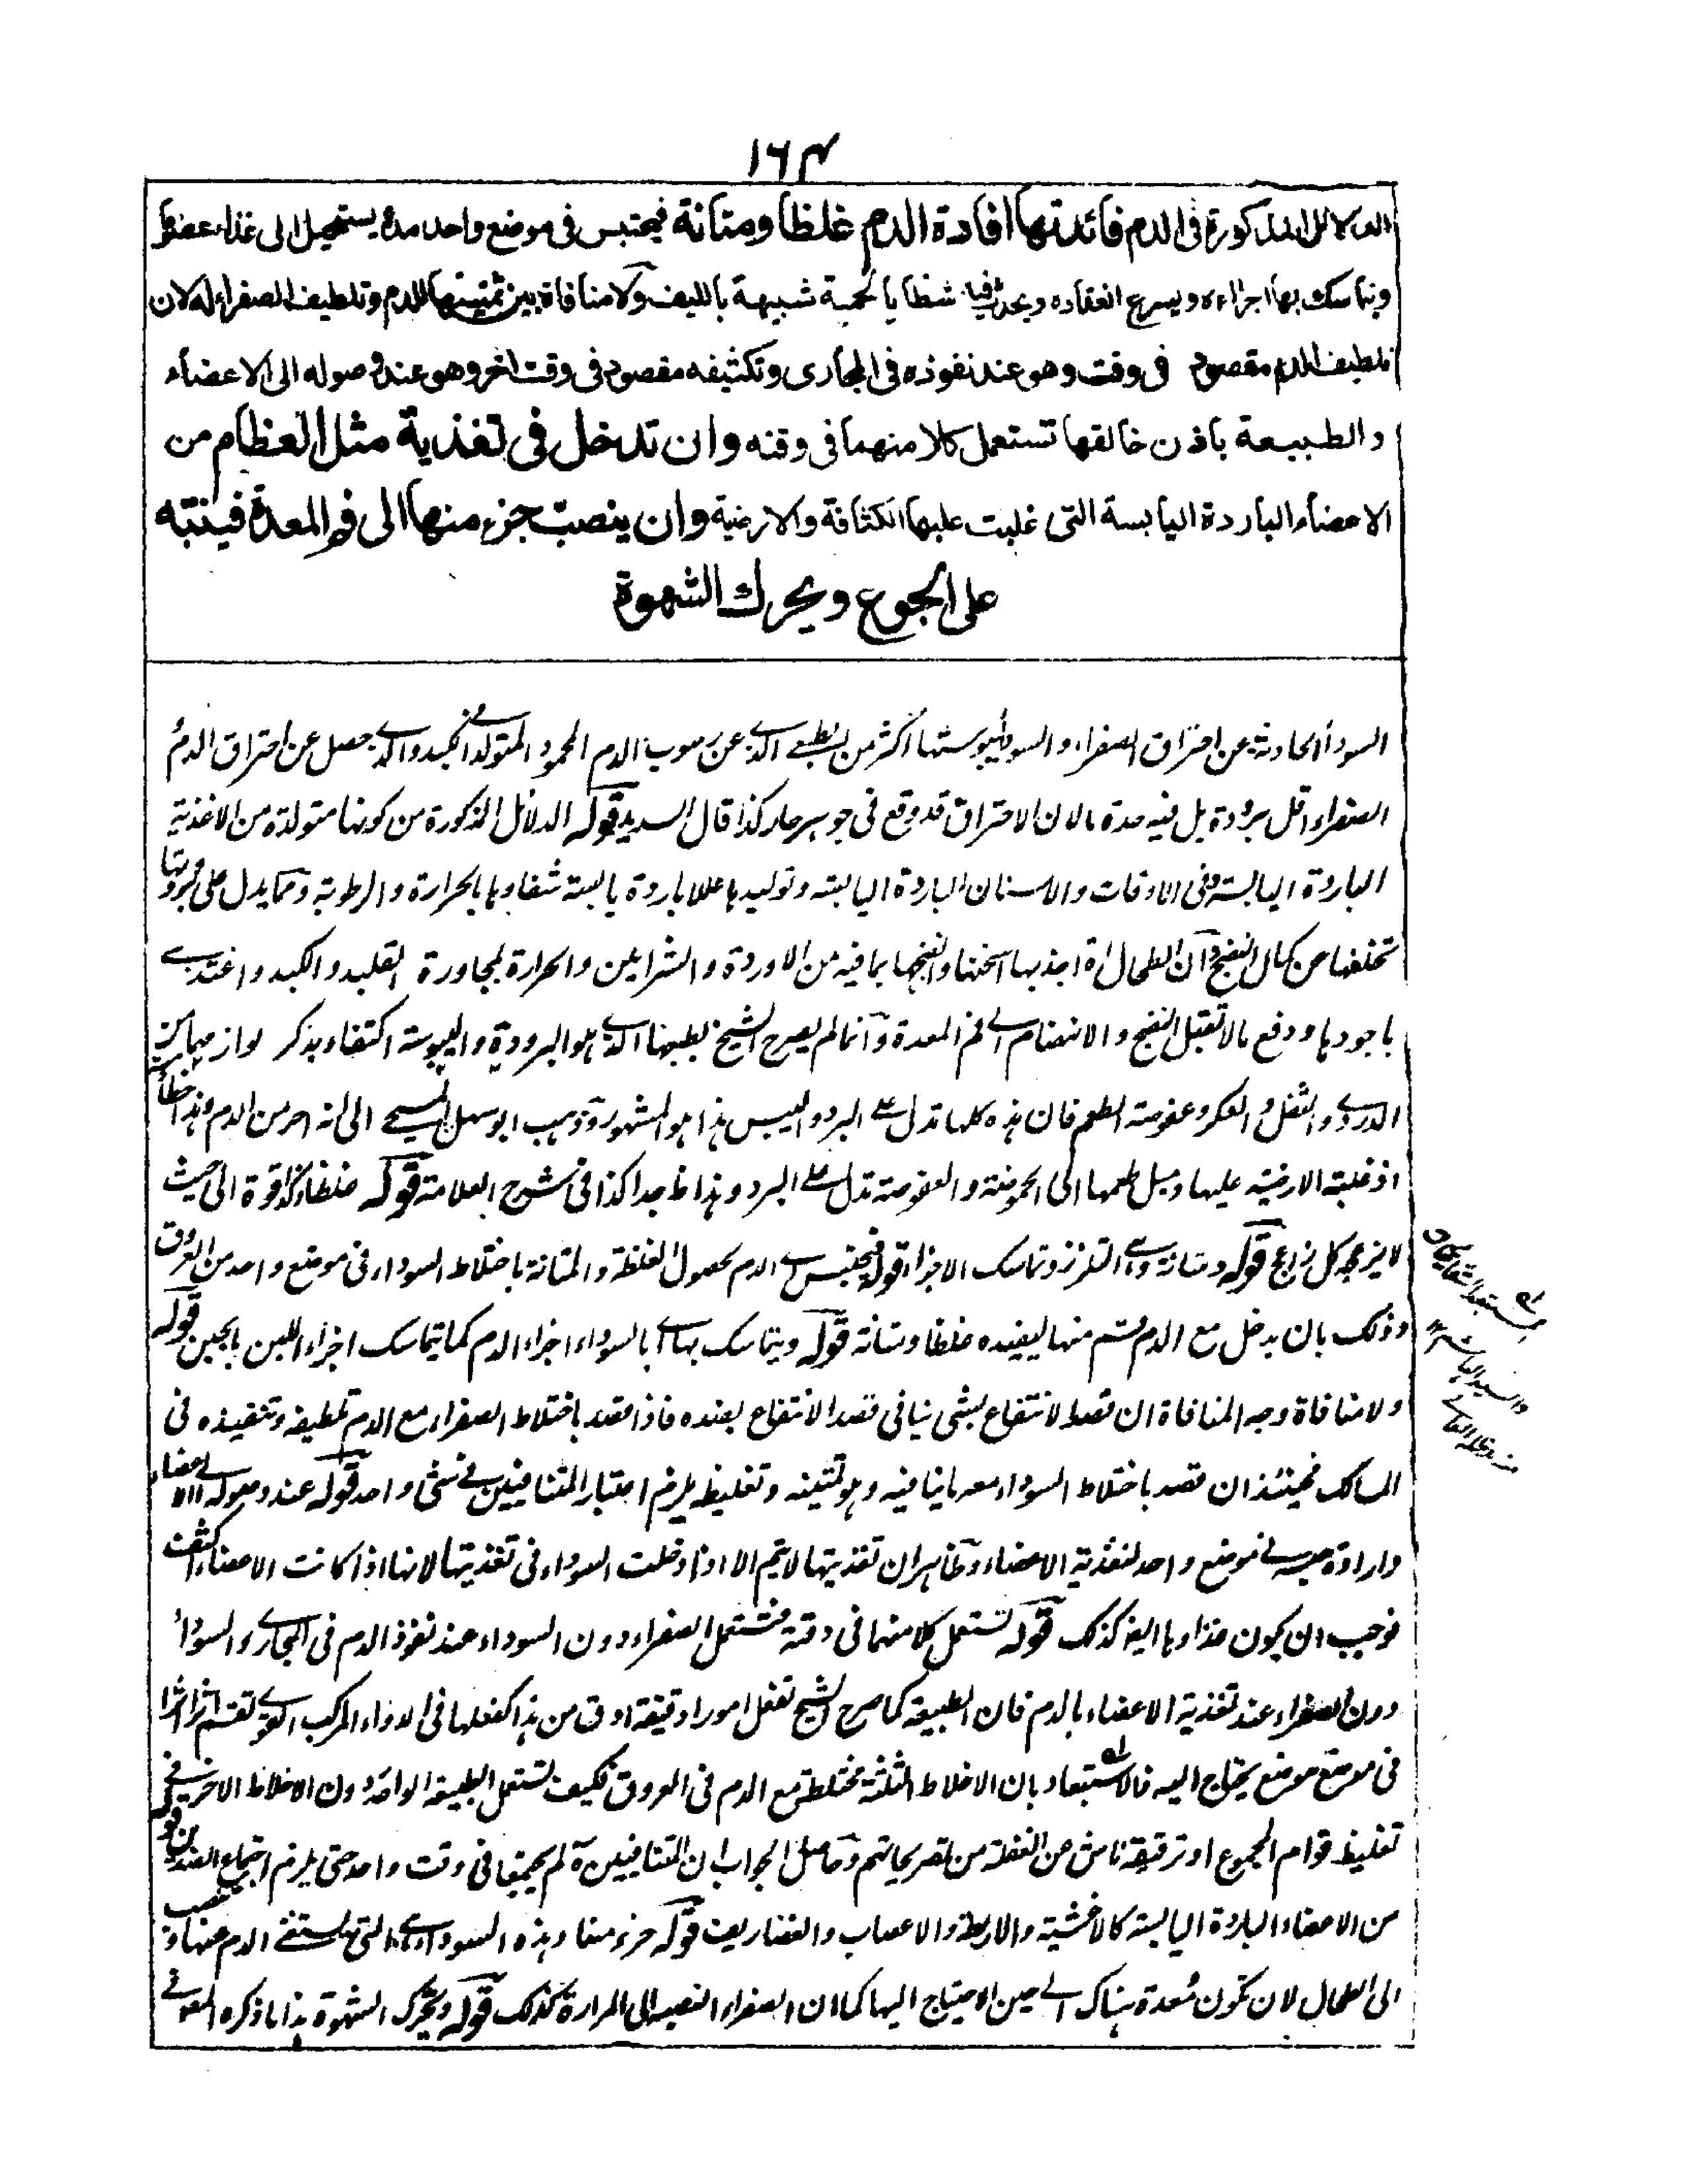 ١٦٤
الدلائل المذكورة فى الدم فائدتها افادة الدم غلظا ومتانة فيحتبس فى موضع واحد مدة يستحيل الى غذاء عضو
ويتماسك بها اجزاءه ويسرع انعقاده ويحدث فيه شظايا لحمية شبيهة بالليف ولا منافاة بين تمتينها للدم وتلطيف الصفراء له لان
تلطيف الدم مقصود فى وقت وهو عند نفوذه فى المجارى وتكثيفه مقصود فى وقت اخر وهو عند وصوله الى الاعضاء
والطبيعة باذن خالقها تستعمل كلا منهما فى وقته وان تدخل فى تغذية مثل العظام من
الاعضاء الباردة اليابسة التى غلبت عليها الكثافة والارضية وان ينصب جزء منها الى فم المعدة فينبّه
على الجوع ويحرك الشهوة
السوداء الحادثة عن احتراق الصفراء والسوداء يبوستها اكثر من الطبعے الذے عن رسوب الدم المحمود المتولد فے الكبد والذے حصل عن احتراق الدم
الصفراء اقل برودة بل فيه حدة ما لان الاحتراق قد وقع فى جوهر حار كذا قال السديد قوله الدلائل المذكورة من كونها متولدة من الاغذية
الباردة اليابسة وفى الاوقات والاسنان الباردة اليابسة وتوليدها عللا باردة يابسة شفاوها بالحرارة والرطوبة ومما يدل على برودتها
تخلفها عن كمال النضج وان الطحال اذا جذبها اسخنها وانضجها بما فيه من الاوردة والشرايين والحرارة لمجاورة القلب والكبد واغتذے
باجودها ودفع ما لا تقبل النضج والانهضام الے فم المعدة وانما لم يصرح الشيخ بطبعها الذے هو البرودة واليبوسة اكتفاء بذكر لوازمها من
الدردے والثفل والعكر وعفوصة الطعم فان هذه كلها تدل علے البرد واليبس هذا هو المشهور وذهب ابو سهل المسيحے الى انه احر من الدم وهذا خطأ
اذ غلبة الارضية عليها وميل طعمها الى الحموضة والعفوصة تدل علے البرد وهذا خطأ جدا كذا فى شرح العلامة قوله غلظا وكذا قوة الى حيث
لا يزعجه كل مزعج قوله ومتانة وهے التلزز وتماسك الاجزاء قوله فيحتبس اے الدم لحصول الغلظة والمتانة باختلاط السوداء فى موضع واحد من العروق
وذلك بان يدخل مع الدم قسم منها ليفيده غلظا ومتانة قوله ويتماسك بها اے بالسوداء اجزاء الدم كما يتماسك اجزاء اللبن بالجبن قوله
ولا منافاة وجه المنافاة ان قصد الانتفاع بشى ينافى قصد الانتفاع بضده فاذا قصد باختلاط الصفراء مع الدم تلطيفه وتنفيذه فى
المسالك فحينئذ ان قصد باختلاط السوداء معه ما ينافيه وهو تمتينه وتغليظه يلزم اعتبار المتنافيين فے شى واحد قوله عند وصوله الے الاعضاء
وارادة حبسه فے موضع واحد لتغذية الاعضاء وظاهر ان تغذيتها لا يتم الا اذا دخلت السوداء فى تغذيتها لانها اذا كانت الاعضاء اكثف
فوجب ان يكون غذاوها ايضا كذلك قوله تستعمل كلا منهما فى وقته فتستعمل الصفراء دون السوداء عند نفوذ الدم فى المجارے والسوداء
دون الصفراء عند تغذية الاعضاء بالدم فان الطبيعة كما صرح الشيخ تفعل امورا دقيقة ادق من هذا كفعلها فى الدواء المركب القوے تقسم اثرا اثرا
فى موضع موضع يحتاج اليه فالاستبعاد بان الاخلاط الثلثة مختلطة مع الدم فى العروق فكيف تستعمل الطبيعة الواحد دون الاخلاط الاخر فے
تغليظ قوام المجموع او ترقيقه ناش عن الغفلة من تصريحاتهم وحاصل الجواب ان المتنافيين لم يجتمعا فى وقت واحد حتى يلزم اجتماع الضدين قوله
من الاعضاء الباردة اليابسة كالاغشية والاربطة والاعصاب والغضاريف قوله جزء منها وهذه السوداء هے التى يستغنے الدم عنها وتنصب
الى الطحال لان تكون مُعدة هناك الے حين الاحتياج اليها كما ان الصفراء المنصبة الى المرارة كذلك قوله ويحرك الشهوة هذا ما ذكره